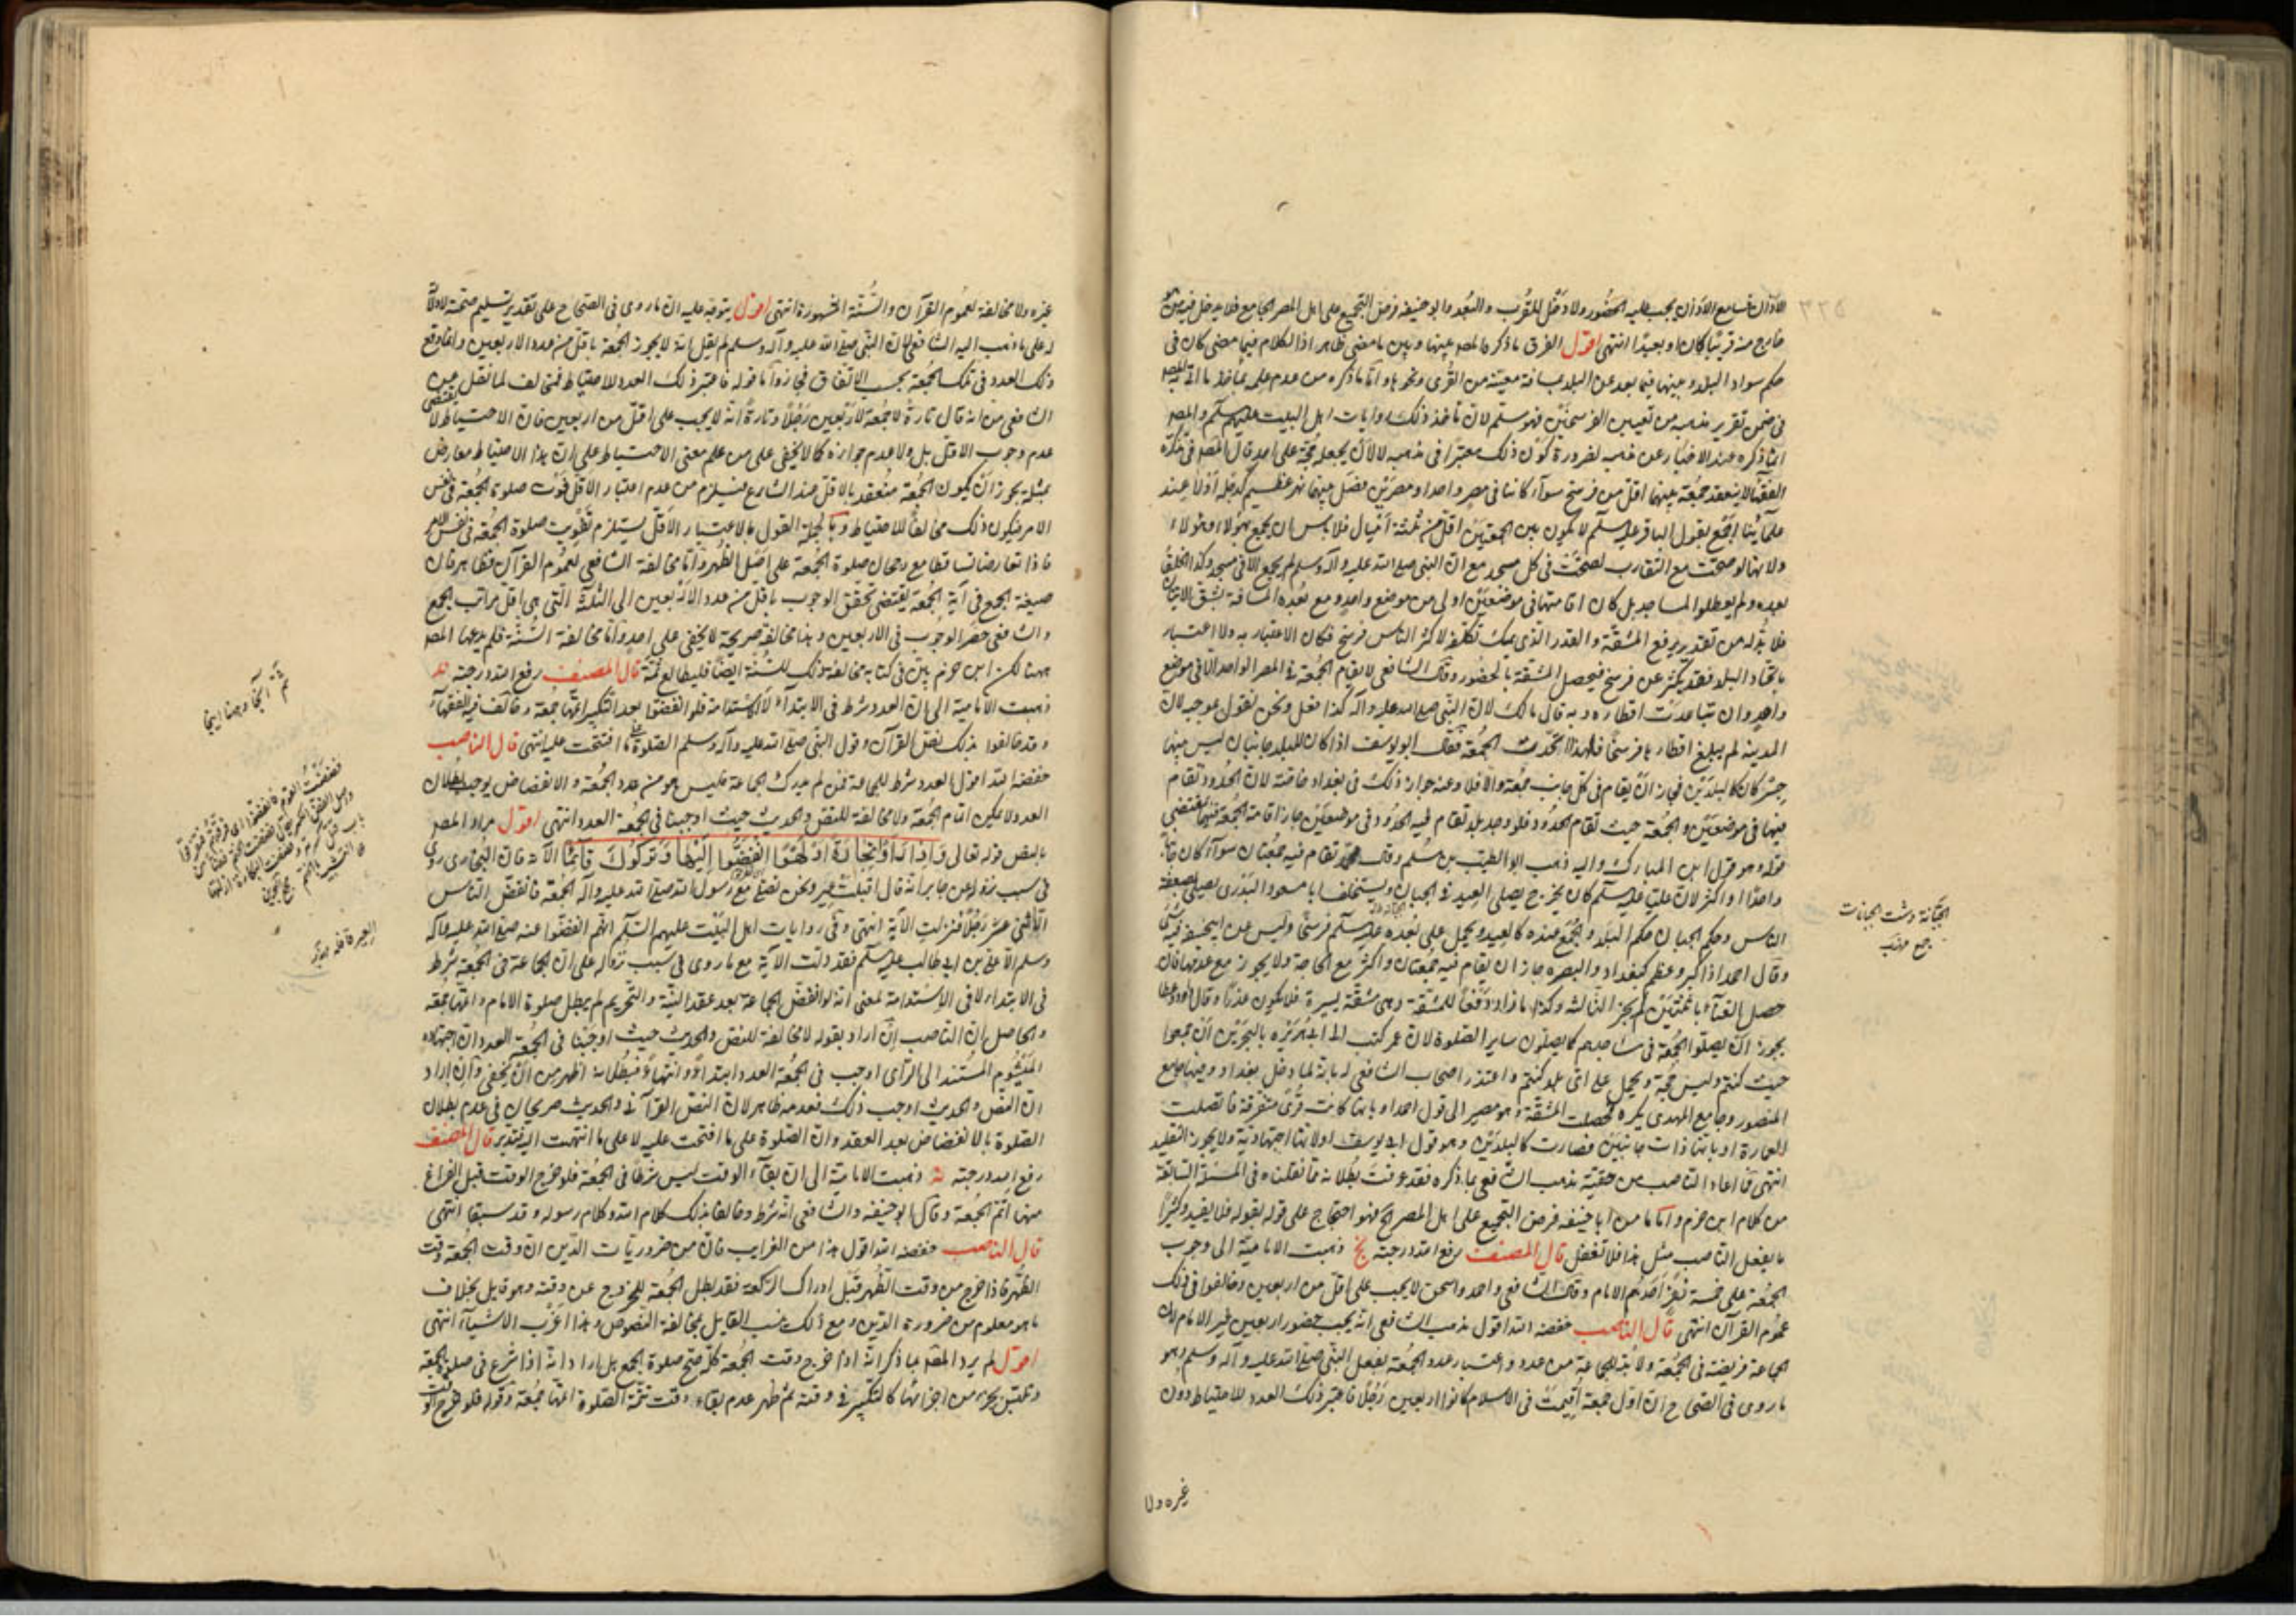 الاذان فسامع الاذان يجب عليه الحضور ولا دخل للقرب والبعد وابو حنيفة فرض التجميع على اهل المصر الجامع فلا يدخل فيه من هو
خارج منه قريبا كان او بعيدا انتهى اقول الفرق ما ذكره المصر بينها وبين ما مضى ظاهر اذ الكلام فيما مضى كان في
حكم سواد البلد وبينهما فيما بعد عن البلد بمسافة معينة من القرى ونحوها واما ما ذكره من عدم علمه بمأخذ ما
في ضمن تقرير مذهبه من تعيين الفرسخين فهو مسلم لان مأخذ ذلك روايات اهل البيت عليهم سلم والمصر
انما ذكره عند الاخبار عن مذهبه لضرورة كون ذلك معتبرا في مذهبه لا لان يجعله حجة على احد قال المصر في تذكرة
الفقهاء لا ينعقد جمعة بينهما اقل من فرسخ سواء كانتا في مصر واحد او مصرين فصل بينهما نهر عظيم كدجلة اولا عند
علمائنا اجمع لقول الباقر عليه سلم لا يكون بين الجمعتين اقل من ثلثة اميال فلا باس ان يجمع هؤلاء وهؤلاء
ولانها لو صحت مع التقارب لصحت في كل مسجد مع ان النبي صلى الله عليه وآله وسلم لم يجمع الا في مسجد وكذا الخلفاء
بعده ولم يعطلوا المساجد بل كان اقامتها في موضعين اولى من موضع واحد ومع بعد المسافة يشق الاتيان
فلا بد له من تقدير يرفع المشقة والقدر الذي يمكن تكلفه لاكثر الناس فرسخ فكان الاعتبار به ولا اعتبار
باتحاد البلد فقد يكثر عن فرسخ فيحصل المشقة بالحضور وقال الشافعي لا يقام الجمعة في المصر الواحد الا في موضع
واحد وان تباعدت اقطاره وبه قال مالك لان النبي صلى الله عليه وآله كذا فعل ونحن نقول بموجبه لان
المدينة لم يبلغ اقطارها فرسخا فلهذا اتحدت الجمعة فقال ابو يوسف اذا كان للبلد جانبان ليس بينهما
جسر كانا كالبلدين فجاز ان يقام في كل جانب جمعة والا فلا وعنه جواز ذلك في بغداد خاصة لان الحدود تقام
فيها في موضعين والجمعة حيث تقام الحدود فلو وجد بلد تقام فيه الحدود في موضعين جاز اقامة الجمعة فيهما بمقتضى
قوله وهو قول ابن المبارك واليه ذهب ابو الطيب بن سلم وقال محمد تقام فيه جمعتان سواء كان جانبا
واحدا او اكثر لان عليا عليه سلم كان يخرج يصلي العيد في الجبان ويستخلف ابا مسعود البدري يصلي بضعفة
الناس وحكم الجبان حكم البلد والجمعة عنده كالعيد ويحمل على بعده عليه سلم فرسخا وليس عن ابي حنيفة فيه شئ
وقال احمد اذا كبر وعظم كبغداد والبصرة جاز ان يقام فيه جمعتان واكثر مع الحاجة ولا يجوز مع عدمها فان
حصل الغناء باثنتين لم يجز الثالثة وكذا ما زاد دفعا للمشقة وهي مشقة يسيرة فلا يكون عذرا وقال داود وعطا
يجوز ان يصلوا الجمعة في مساجدهم كما يصلون ساير الصلوة لان عمر كتب الى ابي هريرة بالبحرين ان جمعوا
حيث كنتم وليس حجة ويحمل على اي بلد كنتم واعتذر اصحاب الشافعي له بانه لما دخل بغداد وفيها جامع
المنصور وجامع المهدي يكره لحصلت المشقة وهو مصير الى قول احمد او بانها كانت قرى متفرقة فاتصلت
العمارة او بانها ذات جانبين فصارت كالبلدين وهو قول ابي يوسف او لانها اجتهادية ولا يجوز التقليد
انتهى فما اعاد الناصب من حقيقة مذهب الشافعي بما ذكره فقد عرفت بطلانه مما نقلناه في المسئلة السابقة
من كلام ابن حزم واما ما من ابا حنيفة فرض التجميع على اهل المصر الخ فهو احتجاج على قوله بقوله فلا يفيد وكثيرا
ما يفعل الناصب مثل هذا فلا تغفل قال المصنف رفع الله درجته يح ذهبت الامامية الى وجوب
الجمعة على خمسة نفر احدهم الامام وقال الشافعي واحمد واسحق لا يجب على اقل من اربعين وخالفوا في ذلك
عموم القرآن انتهى قال الناصب خفضه الله اقول مذهب الشافعي انه يجب حضور اربعين غير الامام لان
الجماعة فريضة في الجمعة ولا بد للجماعة من عدد واعتبار عدد الجمعة بفعل النبي صلى الله عليه وآله وسلم وهو
ما روى في الصحاح ان اول جمعة اقيمت في الاسلام كانوا اربعين رجلا فاعتبر ذلك العدد للاحتياط دون
غيره ولا
الجبانة دشت الجبانات
جمع مهذب
غيره ولا مخالفة لعموم القرآن والسنة المشهورة انتهى اقول يتوجه عليه ان ما روى في الصحاح على تقدير تسليم صحته لا دلالة
له على ما ذهب اليه الشافعي لان النبي صلى الله عليه وآله وسلم لم يقل انه لا يجوز الجمعة باقل من عدد الاربعين وانما وقع
ذلك العدد في تلك الجمعة بحسب الاتفاق واما قوله فاعتبر ذلك العدد للاحتياط فمخالف لما نقل عن
الشافعي من انه قال تارة لا جمعة الا لاربعين رجلا وتارة انه لا يجب على اقل من اربعين فان الاحتياط لا يقتضى
عدم وجوب الاقل بل ولا عدم جوازه كما لا يخفى على من علم معنى الاحتياط على ان هذا الاحتياط معارض
بمثله لجواز ان يكون الجمعة منعقد بالاقل عند الشارع فيلزم من عدم اعتبار الاقل فوت صلوة الجمعة في نفس
الامر فيكون ذلك مخالفا للاحتياط وبالجملة القول بالاعتبار الاقل يستلزم تفويت صلوة الجمعة في نفس الامر
فاذا تعارضا تساقطا مع رجحان صلوة الجمعة على اصل الظهر واما مخالفة الشافعي لعموم القرآن فظاهر فان
صيغة الجمع في آية الجمعة يقتضى تحقق الوجوب باقل من عدد الاربعين الى الثلثة التي هي اقل مراتب الجمع
والشافعي حصر الوجوب في الاربعين وهذا مخالفة صريحة لا يخفى على احد واما مخالفة السنة فلم يدعها المصر
ههنا لكن ابن حزم بين في كتابه مخالفة ذلك للسنة ايضا فليطالع ثمة قال المصنف رفع الله درجته
ذهبت الامامية الى ان العدد شرط في الابتداء لا الاستدامة فلو انفضوا بعد التكبير اتمها جمعة وخالف فيه الفقهاء
وقد خالفوا بذلك نص القرآن وقول النبي صلى الله عليه وآله وسلم الصلوة على ما افتتحت عليه انتهى قال الناصب
خفضه الله اقول العدد شرط للجماعة فمن لم يدرك الجماعة فليس هو من عدد الجمعة والانفضاض يوجب بطلان
العدد ولا يمكن اتمام الجمعة ولا مخالفة للنص والحديث حيث اوجبنا في الجمعة العدد انتهى اقول مراد المصر
بالنص قوله تعالى وَاِذَا رَاَوْا تِجَارَةً اَوْ لَهْوًا انْفَضُّوا اِلَيْهَا وَتَرَكُوكَ قَائِمًا الآية فان البخاري روى
في سبب نزوله عن جابر انه قال اقبلت عير ونحن نصلي مع رسول الله صلى الله عليه وآله الجمعة فانفض الناس
الا اثنى عشر رجلا فنزلت الآية انتهى وفي روايات اهل البيت عليهم السلم انهم انفضوا عنه صلى الله عليه وآله
وسلم الا علي بن ابي طالب عليه سلم فقد دلت الآية مع ما روى في سبب نزوله على ان الجماعة في الجمعة شرط
في الابتداء لا في الاستدامة لمعنى انه لو انفض الجماعة بعد عقد النية والتحريم لم يبطل صلوة الامام واتمها جمعة
والحاصل ان الناصب ان اراد بقوله لا مخالفة للنص والحديث حيث اوجبنا في الجمعة العدد ان اجتهاده
الميشوم المستند الى الرأى اوجب في الجمعة العدد ابتداء وانتهاء فبطلانه اظهر من ان يخفى وان اراد
ان النص والحديث اوجب ذلك فعدمه ظاهر لان النص القرآني والحديث صريحان في عدم بطلان
الصلوة بالانفضاض بعد العقد وان الصلوة على ما افتتحت عليه لا على ما انتهت اليه فتدبر قال المصنف
رفع الله درجته ذهبت الامامية الى ان بقاء الوقت ليس شرطا في الجمعة فلو خرج الوقت قبل الفراغ
منها اتم الجمعة وقال ابو حنيفة والشافعي انه شرط وخالفا بذلك كلام الله وكلام رسوله وقد سبقا انتهى
قال الناصب خفضه الله اقول هذا من الغرايب فان من ضروريات الدين ان وقت الجمعة وقت
الظهر فاذا خرج من وقت الظهر قبل ادراك الركعة فقد بطل الجمعة للخروج عن وقته وهو قايل بخلاف
ما هو معلوم من ضرورة الدين ومع ذلك ينسب القايل بمخالفة النصوص وهذا اغرب الاشياء انتهى
اقول لم يرد المصر بما ذكر انه اذا خرج وقت الجمعة كله صح صلوة الجمع بل اراد انه اذا شرع في صلوة الجمعة
وتلبس بجزء من اجزائها كالتكبير في وقته ثم ظهر عدم بقاء وقت تتمة الصلوة اتمها جمعة وقوله فلو خرج الوقت
العير قافلة